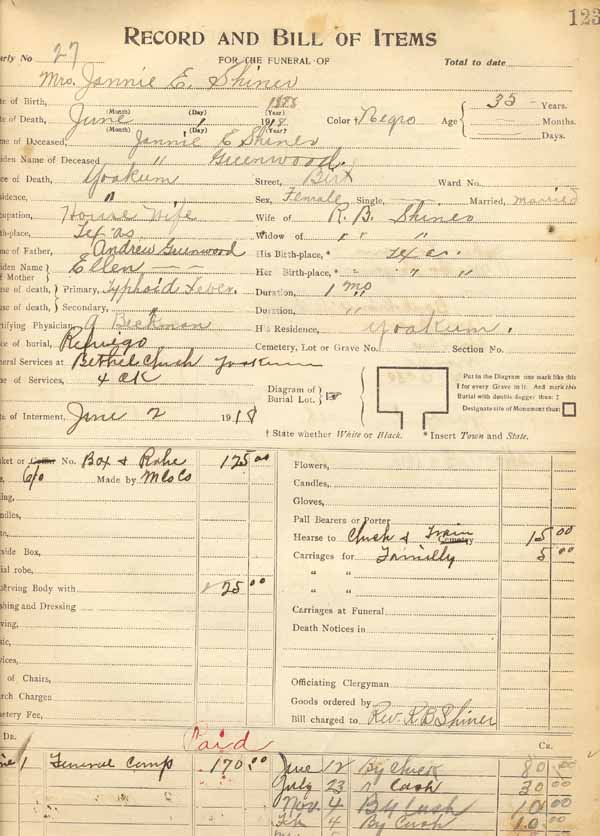 123
RECORD AND BILL OF ITEMS
early No 27 FOR THE FUNERAL OF Total to date
Mrs. Jannie E. Shiner
e of Birth, 1888
(Month) (Day) (Year)
te of Death, June 1 1918 Color † Negro Age 35 Years.
(Month) (Day) (Year) Months.
Days.
me of Deceased, Jannie E Shiner
iden Name of Deceased " Greenwood.
ce of Death, Yoakum Street, Ward No.
sidence, " Sex, Female Single, Married, married
cupation, House Wife Wife of R. B. Shiner
th-place, Texas Widow of " " "
me of Father, Andrew Greenwood His Birth-place, * Texas.
iden Name of Mother Ellen — — Her Birth-place, * " "
se of death, Primary, Typhoid Fever. Duration, 1 mo
use of death, Secondary, " Duration, "
rtifying Physician, A Beckman His Residence, Yoakum.
ce of burial, Refugio Cemetery, Lot or Grave No. Section No.
neral Services at Bethel Chuch Yoakum
e of Services, 4 ock
te of Interment, June 2 1918
Diagram of Burial Lot. ☞
Put in the Diagram one mark like this
I for every Grave in it. And mark this
Burial with double-dagger thus: ‡
Designate site of Monument thus: □
† State whether White or Black. * Insert Town and State.
sket or Coffin No. Box & Robe 125 00
Made by M Co Co
ing,
ndles,
tside Box,
ial robe,
serving Body with 25 00
shing and Dressing
ving,
sic,
vices,
of Chairs,
rch Charges
etery Fee,
Flowers,
Candles,
Gloves,
Pall Bearers or Porter
Hearse to Chuch & Train Cemetery 15 00
Carriages for Familly 5 00
" "
" "
Carriages at Funeral
Death Notices in
Officiating Clergyman
Goods ordered by
Bill charged to Rev. R B Shiner
DR. Paid CR.
ne 1 General Comp 170.00 June 12 By Check 80 00
July 23 " Cash 30 00
Nov. 4 By Cash 10 00
Feb 4 By Cash 10 00